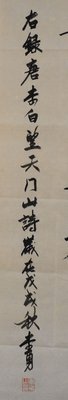 右録唐李白望天门山詩歲在戊戌秋李勇